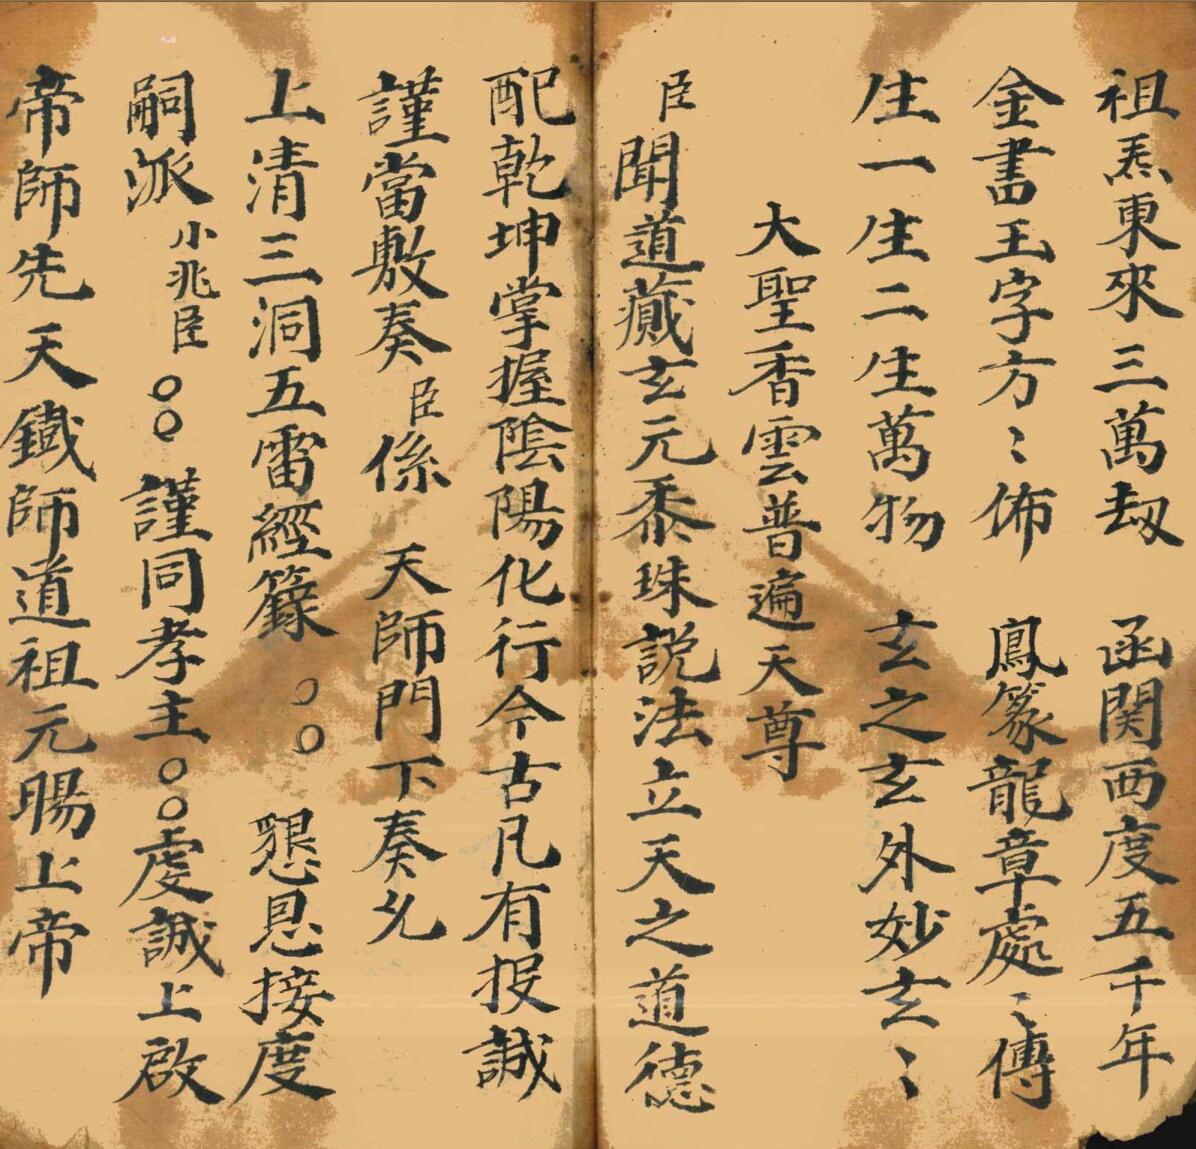 祖炁東來三萬刼　函関西度五千年
金書玉字方〻佈　鳳篆龍章處〻傳
生一生二生萬物　玄之玄外妙玄〻
大聖香雲普遍天尊
臣聞道藏玄元黍珠説法立天之道德
配乾坤掌握陰陽化行今古凡有投誠
謹當敷奏臣係　天師門下奏乆
上清三洞五雷經籙　〇〇　懇恩接度
嗣派小兆臣〇〇謹同孝主〇〇虔誠上啟
帝師先天鐵師道祖元賜上帝